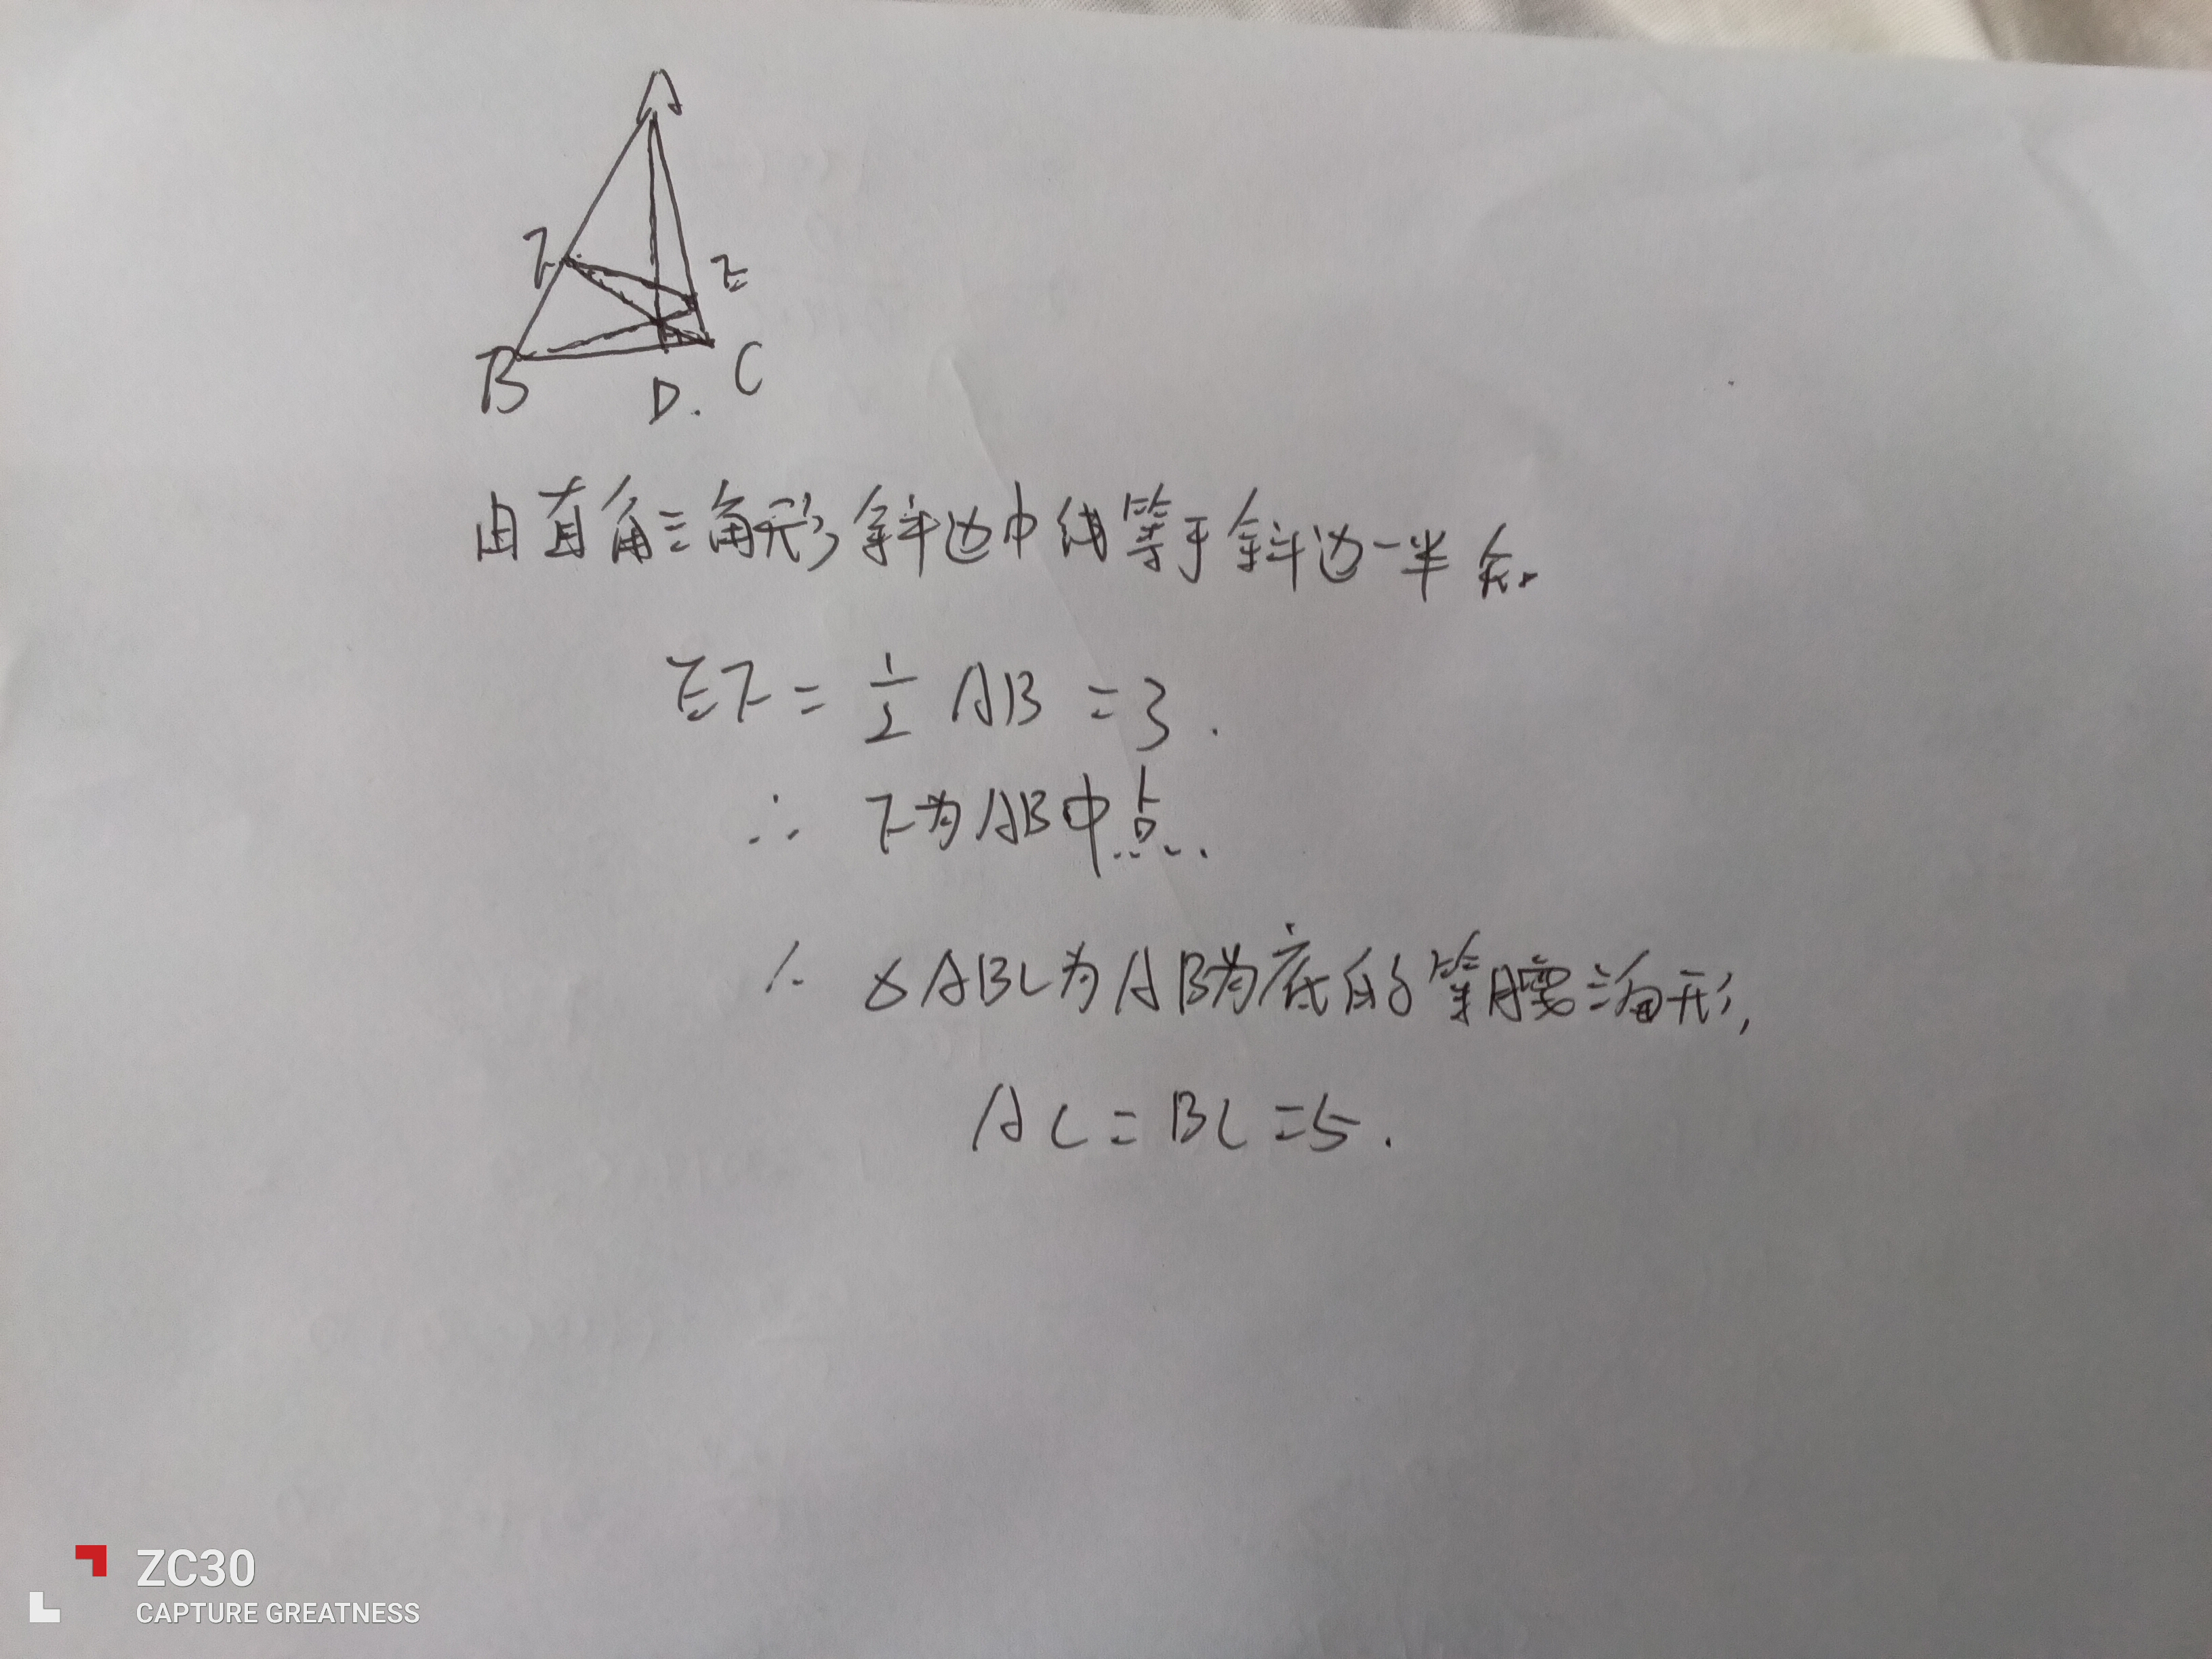 A
F
E
B
D.
C
由直角三角形斜边中线等于斜边一半知
EF = 1/2 AB = 3.
∴ F为AB中点.
∴ △ABC为AB为底的等腰三角形,
AC = BC = 5.
ZC30
CAPTURE GREATNESS